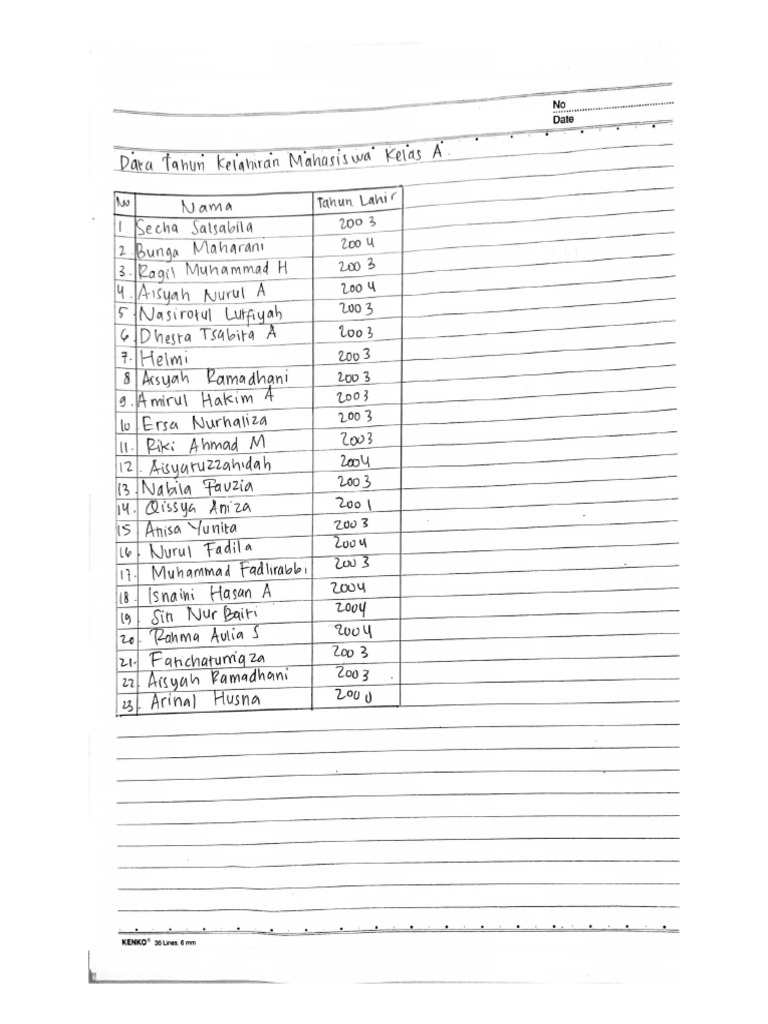 No
Date
Data Tahun Kelahiran Mahasiswa Kelas A.
No Nama Tahun Lahir
1 Secha Salsabila 2003
2 Bunga Maharani 2004
3. Ragil Muhammad H 2003
4. Aisyah Nurul A 2004
5 Nasirotul Lutfiyah 2003
6. Dhesta Tsabita A 2003
7. Helmi 2003
8 Aisyah Ramadhani 2003
9. Amirul Hakim A 2003
10 Ersa Nurhaliza 2003
11. Riki Ahmad M 2003
12. Aisyatuzzahidah 2004
13. Nabila Fauzia 2003
14. Qissya Aniza 2001
15 Anisa Yunita 2003
16. Nurul Fadila 2004
17. Muhammad Fadlirabbi 2003
18. Isnaini Hasan A 2004
19. Siti Nur Baiti 2004
20. Rahma Aulia S 2004
21. 2003
22. Aisyah Ramadhani 2003
23. Arinal Husna
KENKO® 36 Lines, 6 mm